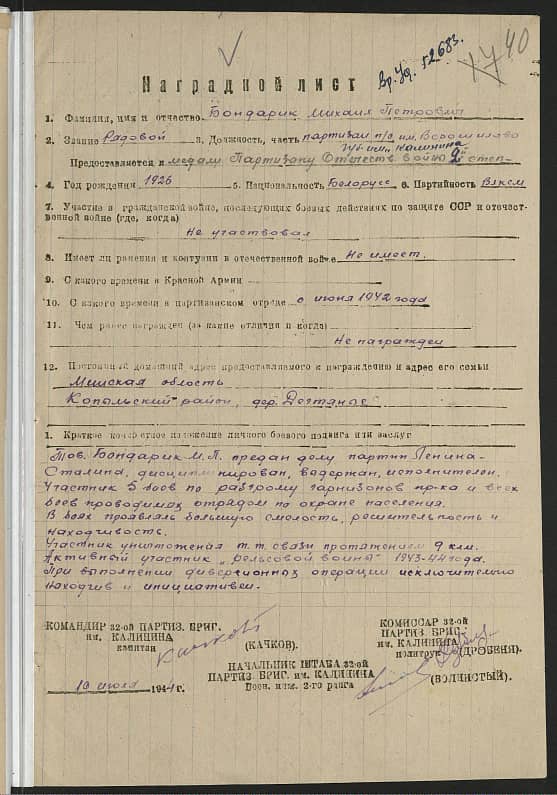 Вр. Уд. 52683.
40
Наградной лист
1. Фамилия, имя и отчество Бондарик Михаил Петрович
2. Звание Рядовой 3. Должность, часть партизан п/о им. Ворошилова
бриг. им. Калинина
Предоставляется к медали Партизану Отечеств. войны 2й степ-
4. Год рождения 1926 5. Национальность Белорусс 6. Партийность Влксм
7. Участие в гражданской войне, последующих боевых действиях по защите ССР и отечест-
венной войне (где, когда)
Не участвовал
8. Имеет ли ранения и контузии в отечественной войне Не имеет.
9. С какого времени в Красной Армии
10. С какого времени в партизанском отряде с июня 1942 года
11. Чем ранее награжден (за какие отличия и когда)
Не награжден
12. Постоянный домашний адрес предоставляемого к награждению и адрес его семьи
Минская область
Копыльский район, дер. Дектяное
1. Краткое конкретное изложение личного боевого подвига или заслуг
Тов. Бондарик М.П. предан делу партии Ленина-
Сталина, дисциплинирован, выдержан, исполнителен.
Участник 5 боев по разгрому гарнизонов пр-ка и всех
боев проводимых отрядом по охране населения.
В боях проявлял большую смелость, решительность и
находчивость.
Участник уничтожения т.т. связи протяжением 9 клм.
Активный участник „рельсовой войны" 1943-44 года.
При выполнении диверсионных операции исключительно
находчив и инициативен.
КОМАНДИР 32-ой ПАРТИЗ. БРИГ.
им. КАЛИНИНА
капитан
(КАЧКОВ).
КОМИССАР 32-ой
ПАРТИЗ. БРИГ.
им. КАЛИНИНА
политрук (ДРОБЕНЯ).
НАЧАЛЬНИК ШТАБА 32-ой
ПАРТИЗ. БРИГ. им. КАЛИНИНА
Воен. инж. 2-го ранга (ВОЛНИСТЫЙ).
10 июля 1944 г.